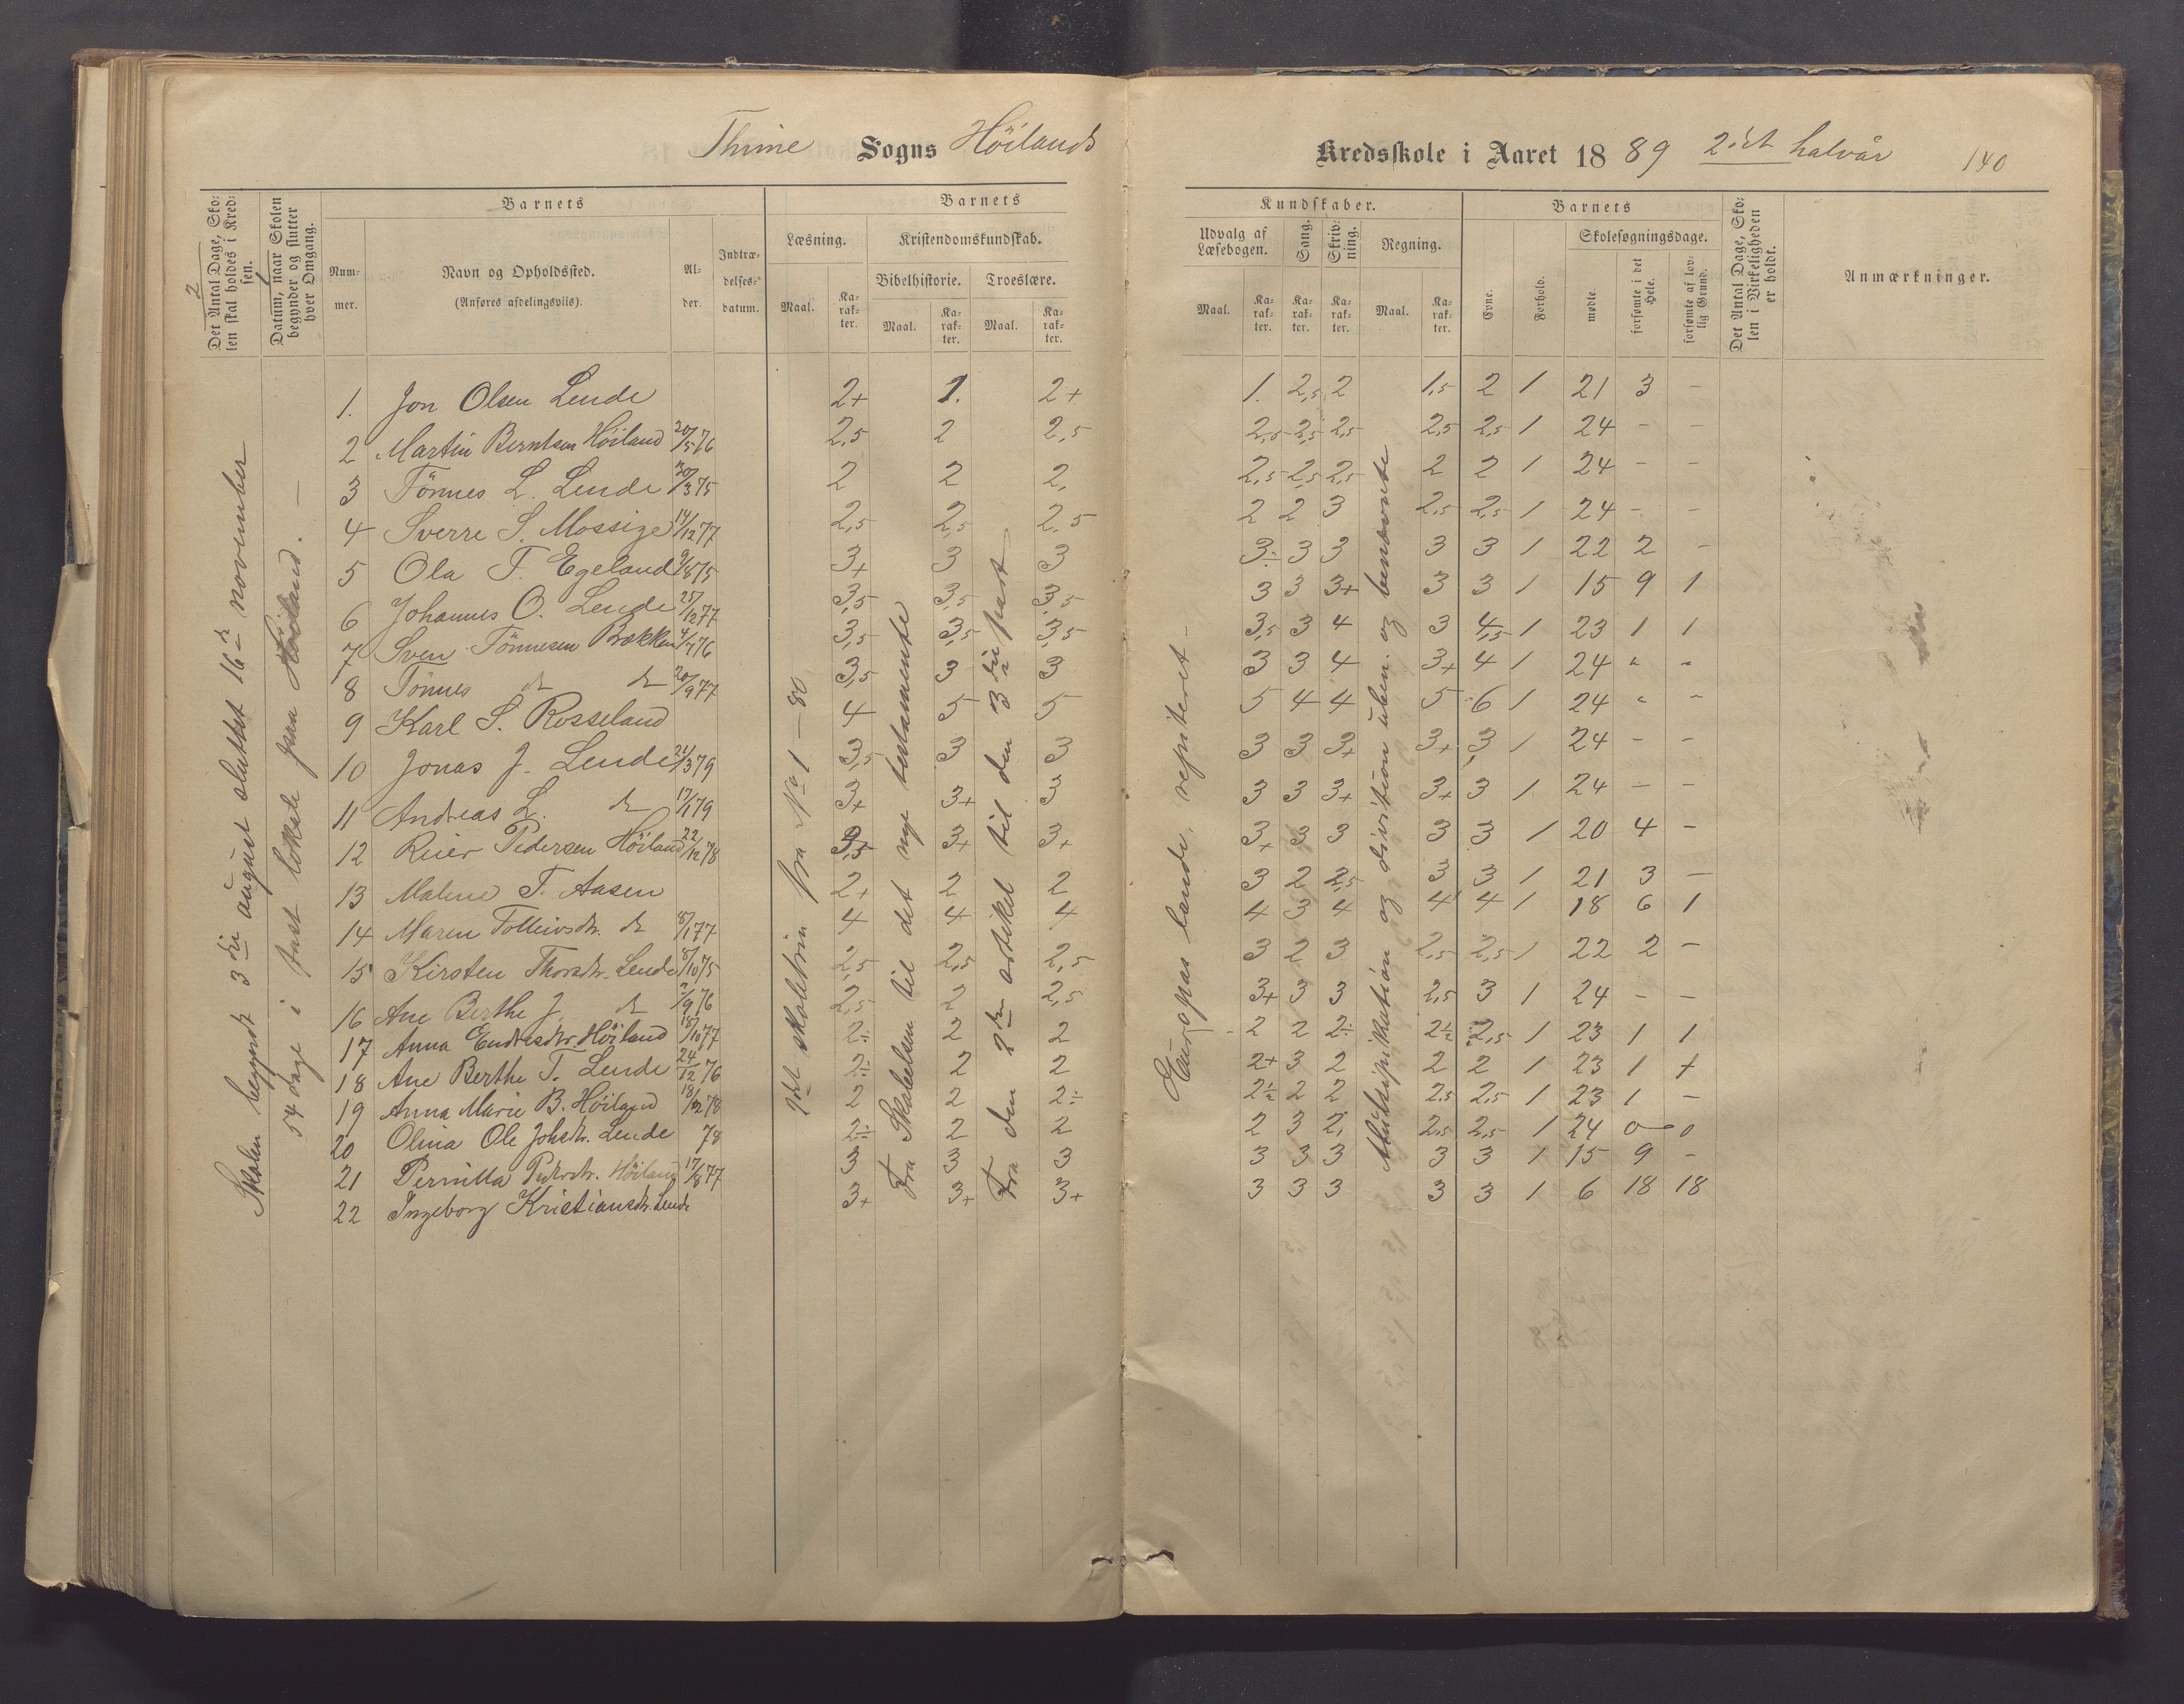 Thime Sogns Höilands Kredsskole i Aaret 1889 2det halvår 140
Det Antal Dage, Skolen skal holdes i Kredsen.
Datum, naar Skolen begynder og slutter hver Omgang.
Barnets
Nummer.
Navn og Opholdssted.
(Anføres afdelingsviis).
Alder.
Indtrædelses-datum.
Barnets
Kundskaber.
Læsning.
Kristendomskundskab.
Bibelhistorie.
Troeslære.
Maal.
Karakter.
Maal.
Karakter.
Maal.
Karakter.
Udvalg af Læsebogen.
Sang.
Skrivning.
Regning.
Maal.
Karakter.
Karakter.
Karakter.
Maal.
Karakter.
Barnets
Evne.
Forhold.
Skolesøgningsdage.
mødte.
forsømte i det Hele.
forsømte af lovlig Grund.
Det Antal Dage, Skolen i Virkeligheden er holdt.
Anmærkninger.
Skolen begyndt 3die august sluttet 16de november
54 dage i fast lokale paa Höiland. —
2det skoletrin fra No 1 — 80
Fra Skabelsen til det nye testamente
Fra den 2den artikel til den 3die part
Europas lande, repiteret —
Multiplikation og division uben. og benævnte
1. Jon Olsen Lende 2+ 1. 2+ 1. 2,5 2 1,5 2 1 21 3 —
2 Martin Berntsen Höiland 20/5 76 2,5 2 2,5 2,5 2,5 2,5 2,5 2,5 1 24 — —
3 Tönnes L. Lende 20/3 75 2 2 2, 2,5 2,5 2,5 2 2 1 24 — —
4 Sverre S. Mossige 14/12 77 2,5 2,5 2,5 2 2 3 2,5 2,5 1 24 — —
5 Ola T. Egeland 9/8 75 3+ 3 3 3÷ 3 3 3 3 1 22 2 —
6 Johannes O. Lende 27/12 77 3,5 3,5 3,5 3 3 3+ 3 3 1 15 9 1
7 Sven Tönnesen Brekken 4/7 76 3,5 3,5 3,5 3,5 3 4 3 4,5 1 23 1 1
8 Tönnes do do 20/9 77 3,5 3 3 3 3 4 3+ 4 1 24 " "
9 Karl S. Rosseland 4 5 5 5 4 4 5 6 1 24 " —
10 Jonas J. Lende 21/3 79 3,5 3 3 3 3 3+ 3+ 3 1 24 — —
11 Andreas L. do 17/1 79 3+ 3+ 3 3 3 3+ 3+ 3 1 24 — —
12 Reier Pedersen Höiland 22/12 78 3,5 3+ 3+ 3+ 3 3 3 3 1 20 4 —
13 Malene T. Aasen 2+ 2 2 3 2 2,5 3 3 1 21 3 —
14 Maren Tolleivsdtr. do 8/1 77 4 4 4 4 3 4 4 4 1 18 6 1
15 Kirsten Thorsdtr. Lende 8/10 75 2,5 2,5 2,5 3 2 3 2,5 2,5 1 22 2 —
16 Ane Berthe J. do 2/9 76 2,5 2 2,5 3+ 3 3 2,5 3 1 24 — —
17 Anna Endresdtr. Höiland 15/10 77 2÷ 2 2 2 2 2÷ 2÷ 2,5 1 23 1 1
18 Ane Berthe T. Lende 24/12 76 2÷ 2 2 2+ 3 2 2 2 1 23 1 +
19 Anna Marie B. Höiland 18/12 78 2 2 2÷ 2÷ 2 2 2,5 2,5 1 23 1 —
20 Olina Ole Johsdtr. Lende 78 2÷ 2 2 2 3 2, 2,5 2,5 1 24 0 — 0
21 Pernilla Pedersdtr. Höiland 17/8 77 3 3 3 3 3 3 3 3 1 15 9 —
22 Ingeborg Kristiansdtr. Lende 3+ 3+ 3+ 3 3 3 3 3 1 6 18 18